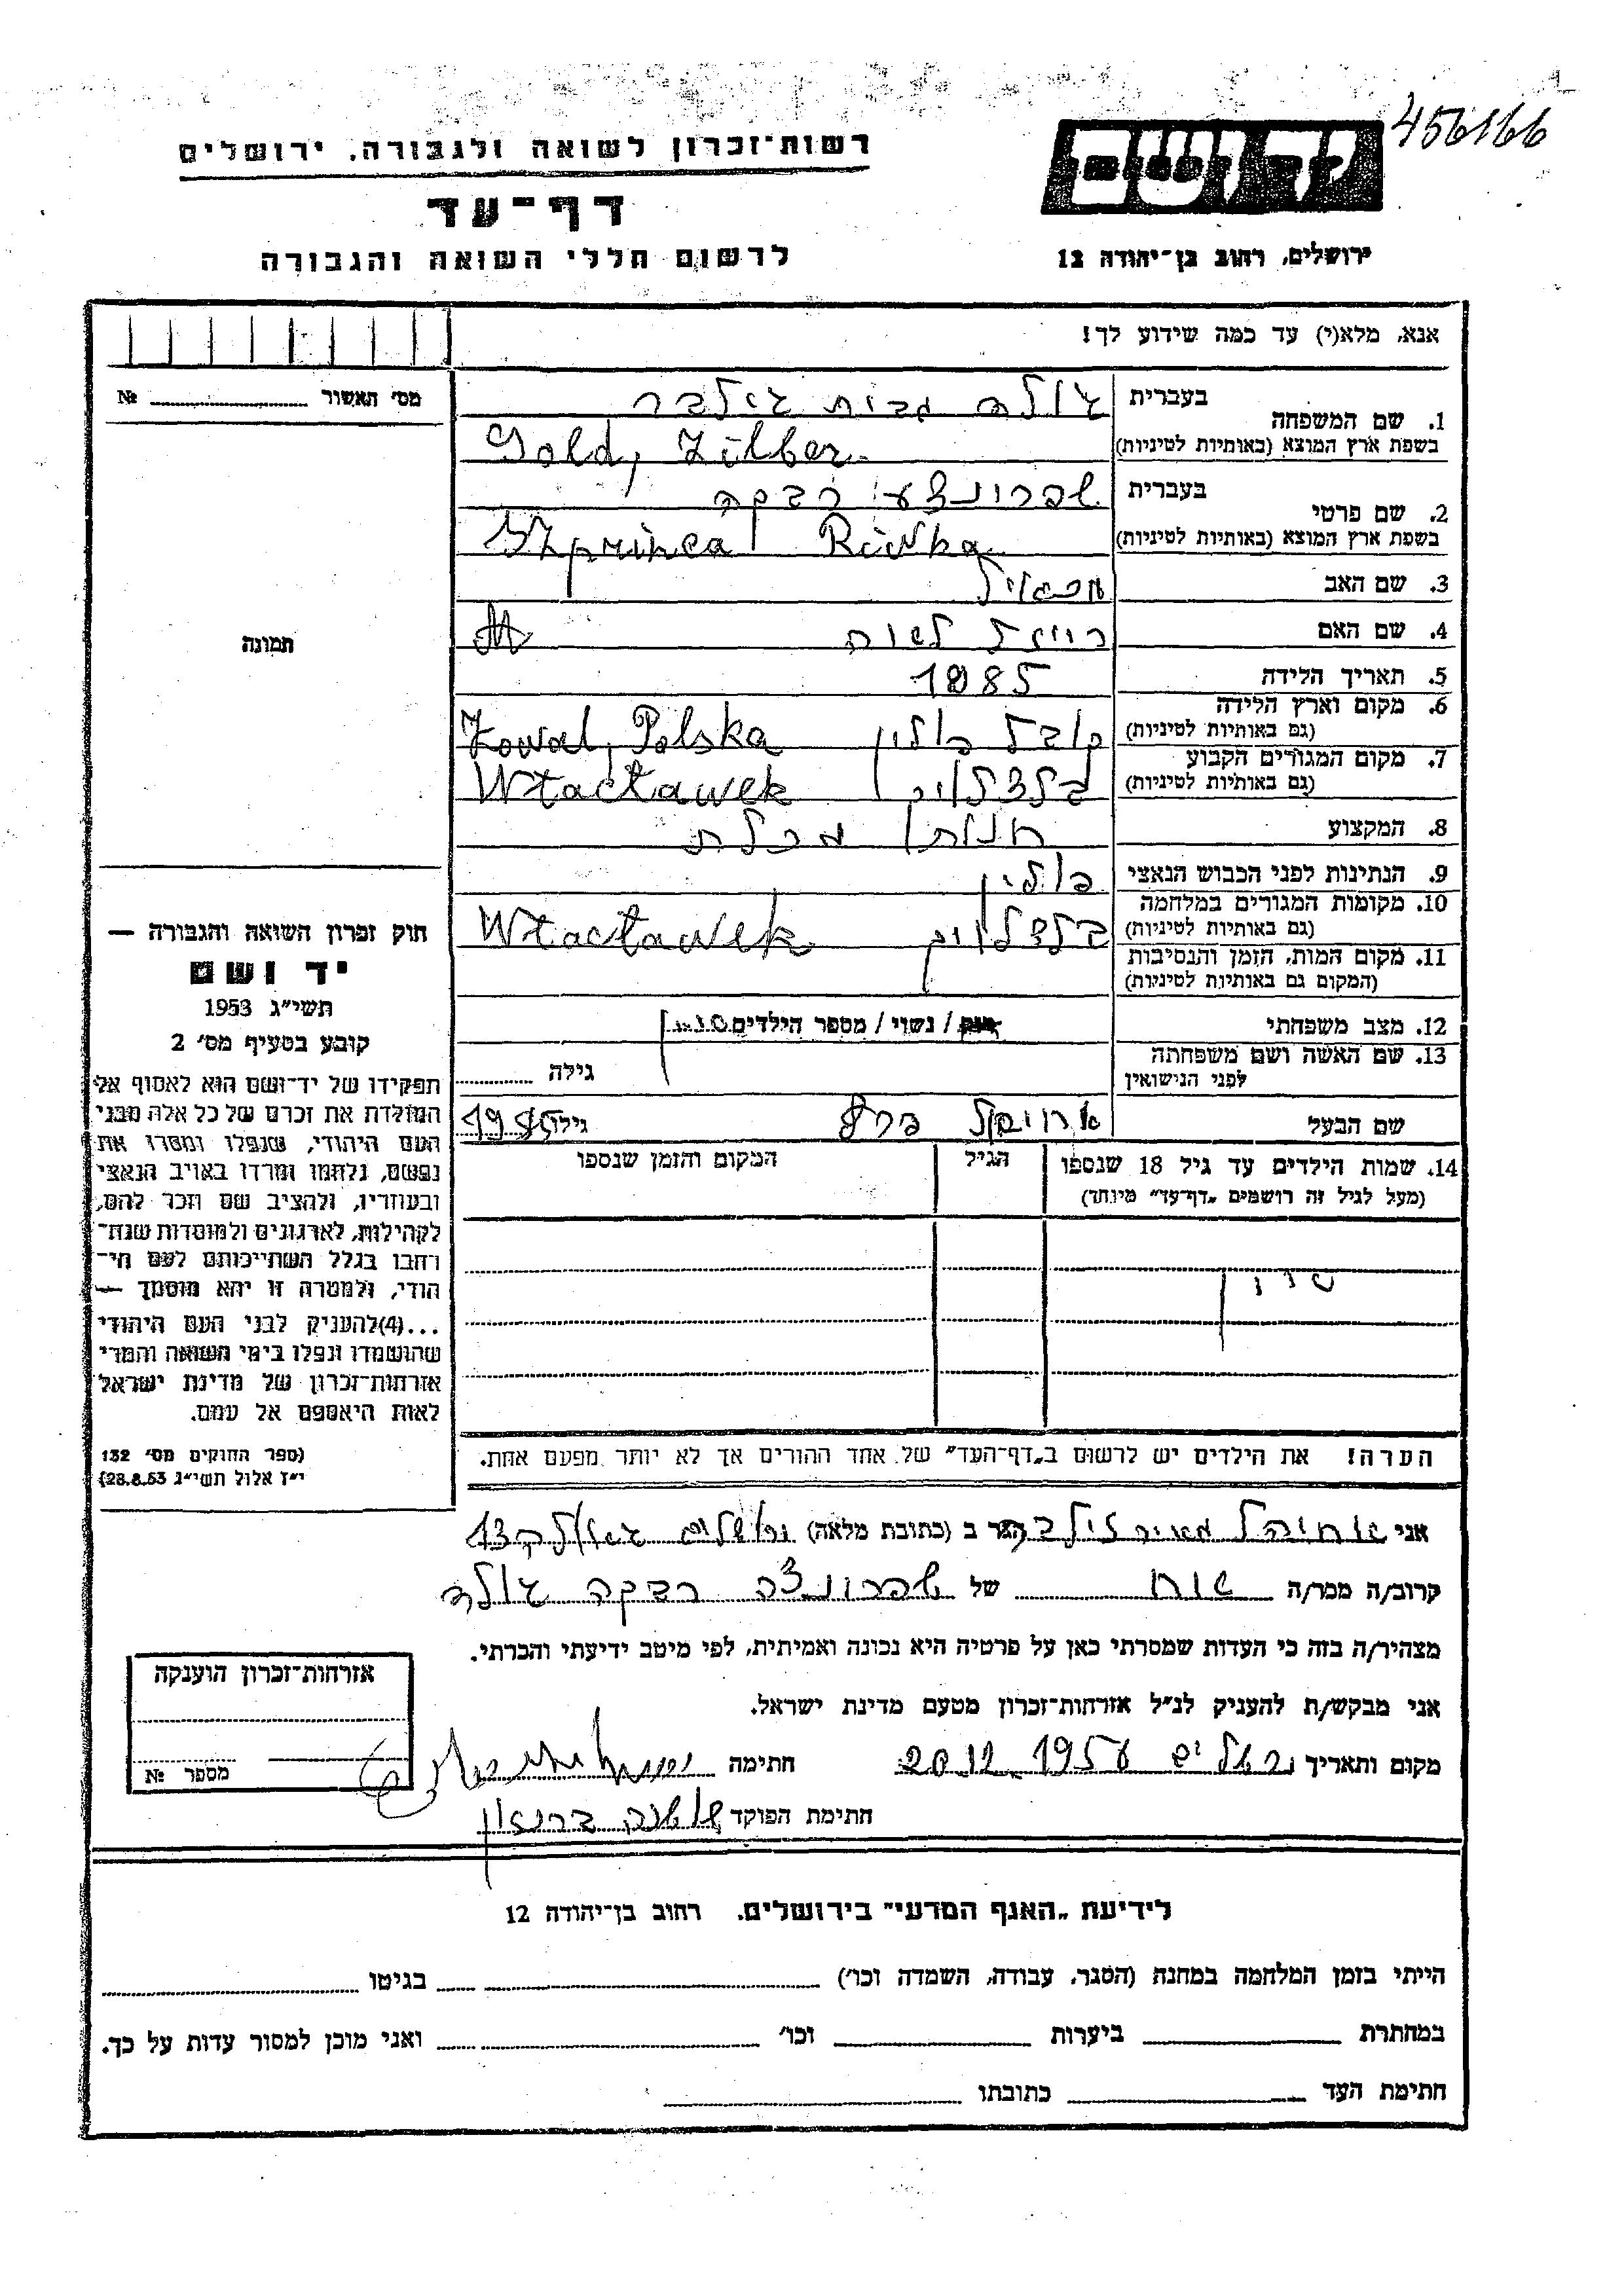 456166
רשות־זכרון לשואה ולגבורה, ירושלים
יד ושם
דף־עד
לרשום חללי השואה והגבורה
ירושלים, רחוב בן־יהודה 12
אנא, מלא(י) עד כמה שידוע לך!
מס׳ תאשור № 
1. שם המשפחה
בעברית גולד גבות זילבר
בשפת ארץ המוצא (באותיות לטיניות) Gold, Zilber
2. שם פרטי
בעברית שפרונצע רבקה
בשפת ארץ המוצא (באותיות לטיניות) Szprinca Riwka
3. שם האב
4. שם האם רייזל לאה
5. תאריך הלידה 1885
6. מקום וארץ הלידה
(גם באותיות לטיניות) קובל פולין Kowal, Polska
7. מקום המגורים הקבוע
(גם באותיות לטיניות) Włacławek
8. המקצוע חנות מכלת
9. הנתינות לפני הכבוש הנאצי פולין
10. מקומות המגורים במלחמה
(גם באותיות לטיניות) Włacławek
11. מקום המות, הזמן והנסיבות
(המקום גם באותיות לטיניות)
12. מצב משפחתי רווק / נשוי / מספר הילדים
13. שם האשה ושם משפחתה
לפני הנישואין גילה
שם הבעל גילו
14. שמות הילדים עד גיל 18 שנספו הגיל המקום והזמן שנספו
(מעל לגיל זה רושמים „דף־עד״ מיוחד)
תמונה
חוק זכרון השואה והגבורה —
יד ושם
תשי״ג 1953
קובע בסעיף מס׳ 2
תפקידו של יד־ושם הוא לאסוף אל
המולדת את זכרם של כל אלה מבני
העם היהודי, שנפלו ומסרו את
נפשם, נלחמו ומרדו באויב הנאצי
ובעוזריו, ולהציב שם וזכר להם,
לקהילות, לארגונים ולמוסדות שנח־
רבו בגלל השתייכותם לעם הי־
הודי, ולמטרה זו יהא מוסמך —
...(4)להעניק לבני העם היהודי
שהושמדו ונפלו בימי השואה והמרי
אזרחות־זכרון של מדינת ישראל
לאות היאספם אל עמם.
(ספר החוקים מס׳ 132
י״ז אלול תשי״ג 28.8.53)
הערה! את הילדים יש לרשום ב„דף־העד״ של אחד ההורים אך לא יותר מפעם אחת.
אני מאיר זילבר הגר ב (כתובת מלאה) ירושלים 13
קרוב/ה מכר/ה של שפרונצה רבקה גולד
מצהיר/ה בזה כי העדות שמסרתי כאן על פרטיה היא נכונה ואמיתית, לפי מיטב ידיעתי והכרתי.
אני מבקש/ת להעניק לנ״ל אזרחות־זכרון מטעם מדינת ישראל.
מקום ותאריך ירושלים 20.12.1956 חתימה
חתימת הפוקד
אזרחות־זכרון הוענקה
מספר №
לידיעת „האגף המדעי״ בירושלים, רחוב בן־יהודה 12
הייתי בזמן המלחמה במחנה (הסגר, עבודה, השמדה וכו׳) בגיטו
במחתרת ביערות וכו׳ ואני מוכן למסור עדות על כך.
חתימת העד כתובתו